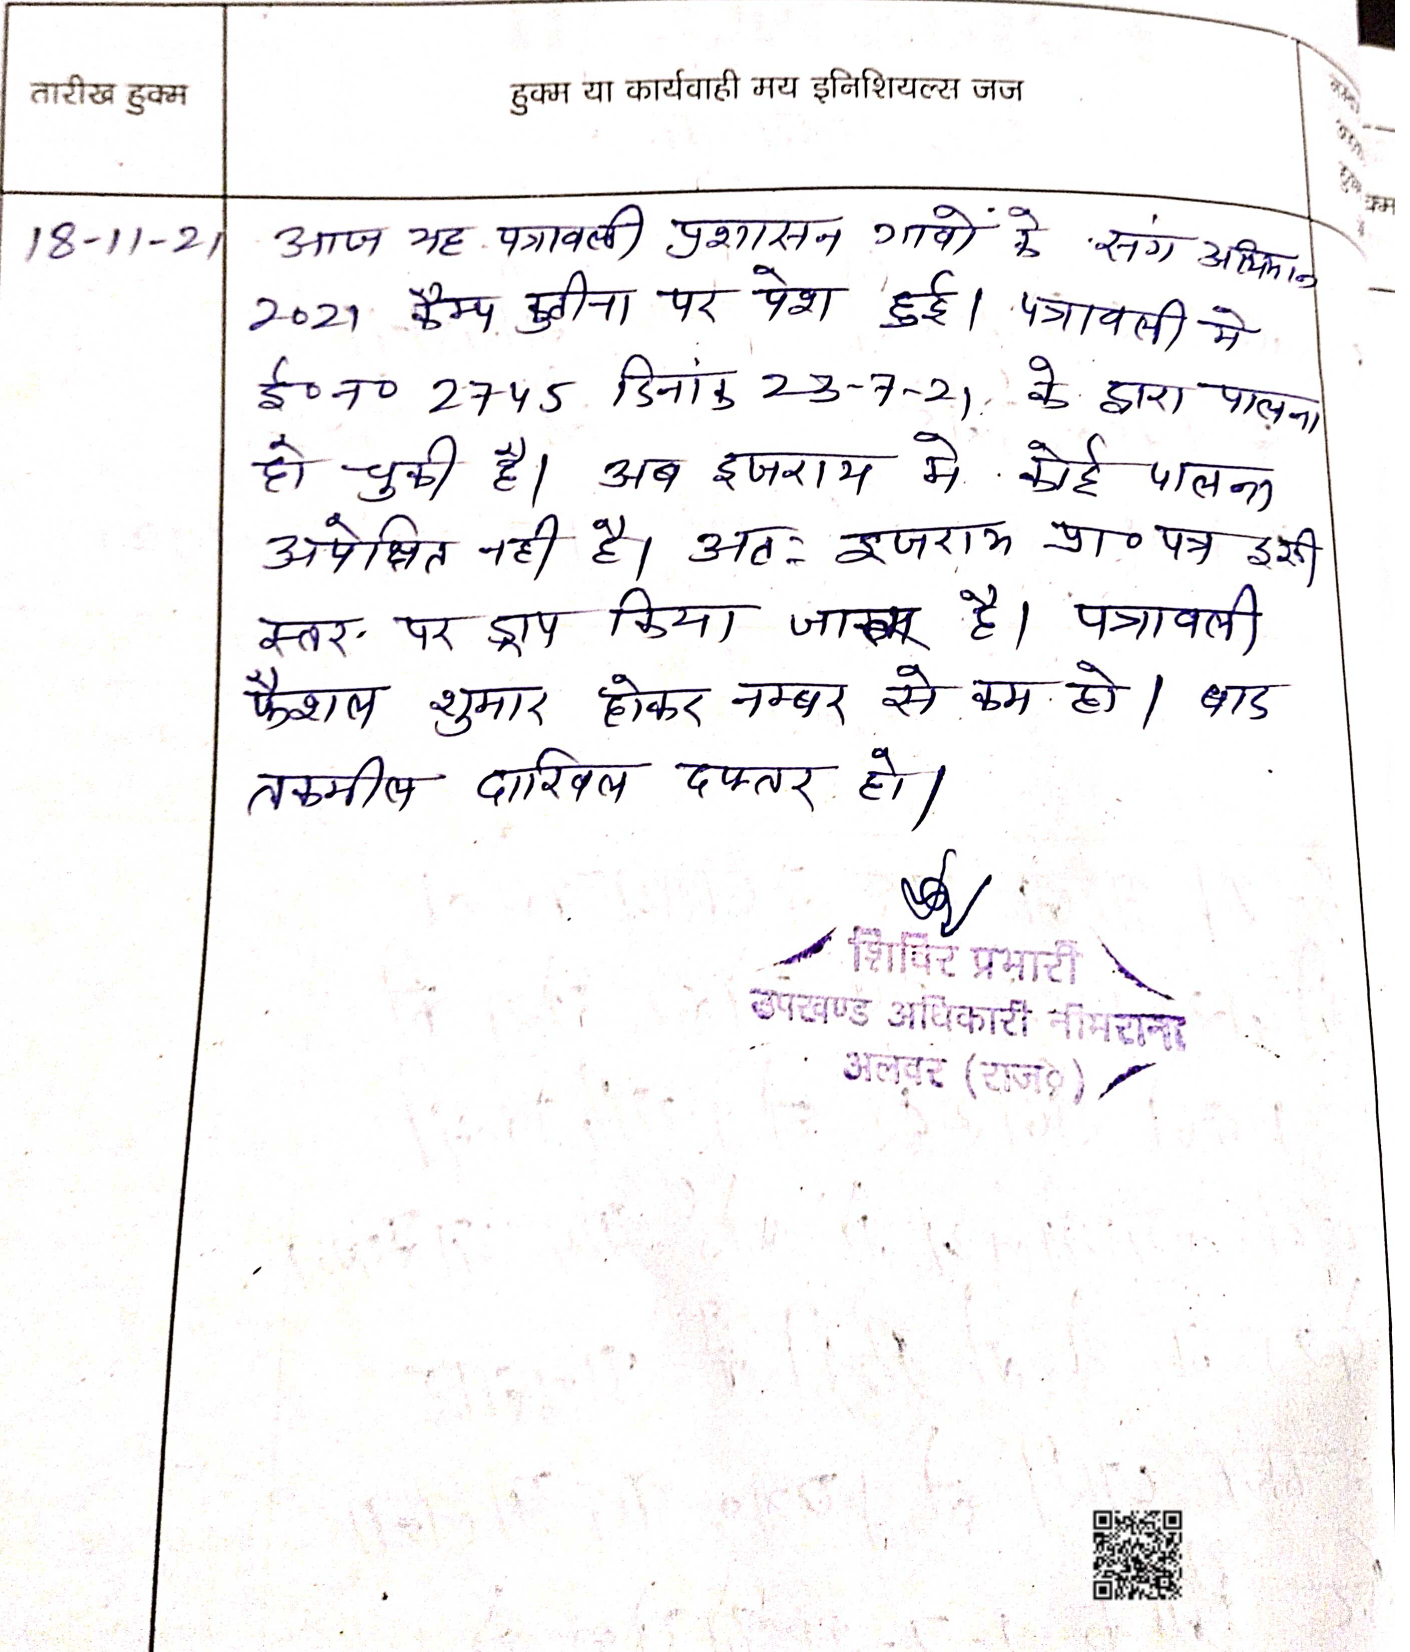 तारीख हुक्म
हुक्म या कार्यवाही मय इनिशियल्स जज
18-11-21 आज यह पत्रावली प्रशासन गावों के संग अभियान
2021 कैम्प कुतीना पर पेश हुई। पत्रावली मे
ई०न० 2745 दिनांक 23-7-21 के द्वारा पालना
हो चुकी है। अब इजराय मे कोई पालना
अपेक्षित नही है। अतः इजराय प्रा० पत्र इसी
स्तर पर ड्राप किया जाता है। पत्रावली
फैशल शुमार होकर नम्बर से कम हो। बाद
तकमील दाखिल दफ्तर हो।
शिविर प्रभारी
उपखण्ड अधिकारी नीमराना
अलवर (राज०)